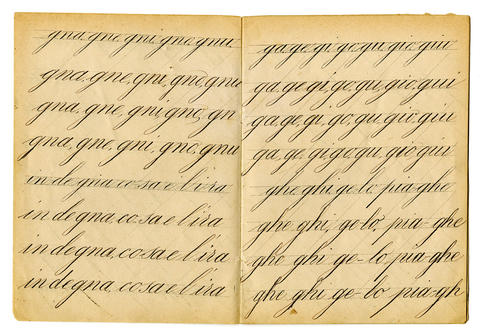 gna, gne, gni, gno, gnu,
gna, gne, gni, gno, gnu
gna, gne, gni, gno, gn
gna, gne, gni, gno, gnu
in de gna co sa e l'ira
in degna co sa e l'ira
in degna co sa e l'ira
in degna co sa e l'ira
ga, ge, gi, go, gu, gio, giu
ga, ge, gi, go, gu, gio, giu
ga, ge, gi, go, gu, gio, giu
ga, ge, gi, go, gu, gio, giu
ghe ghi ge-lo, pia-ghe
ghe ghi, ge-lo, pia-ghe
ghe ghi ge-lo, pia-ghe
ghe ghi ge-lo pia-gh